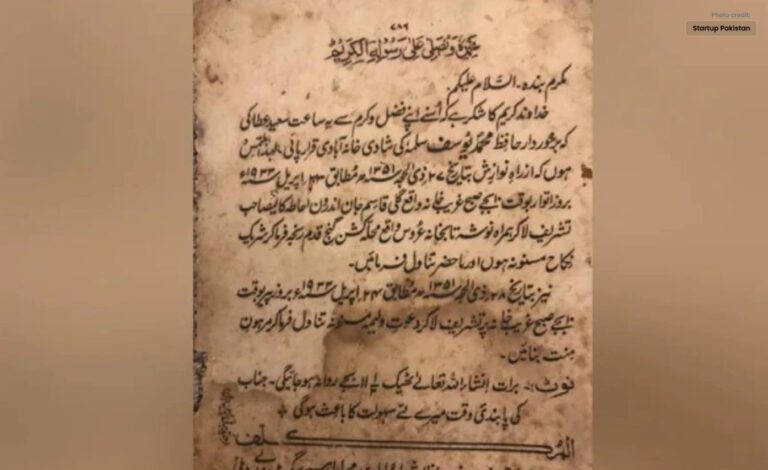 Photo credit:
Startup Pakistan
۷۸۶
نحمدہ ونصلی علیٰ رسولہ الکریم
مکرم بندہ۔ السلام علیکم
خداوند کریم کا شکر ہے کہ اُسنے اپنے فضل و کرم سے یہ ساعت سعید عطا کی
کہ برخوردار حافظ محمد یوسف سلمہٗ کی شادی خانہ آبادی قرار پائی
ہوں کہ ازراہِ نوازش بتاریخ ۲۷ ذی الحجہ ۱۳۵۱ھ مطابق ۲۳ اپریل ۱۹۳۳ء
بروز اتوار بوقت بجے صبح غریب خانہ واقع گلی قاسم جان اندرون احاطہ کالیصاحب
تشریف لاکر ہمراہ نوشہ تا بخانہ عروس واقع محلہ کشن گنج قدم رنجہ فرماکر شریک
نکاح مسنونہ ہوں اور ماحضر تناول فرمائیں۔
نیز بتاریخ ۲۸ ذی الحجہ ۱۳۵۱ھ مطابق ۲۴ اپریل ۱۹۳۳ء بروز پیر بوقت
بجے صبح غریب خانہ پر تشریف لاکر دعوت ولیمہ مسنونہ تناول فرماکر مرہون
منت بنائیں۔
نوٹ: برات انشاء اللہ تعالےٰ ٹھیک بجے روانہ ہوجائیگی۔ جناب
کی پابندی وقت میرے لئے سہولت کا باعث ہوگی
المکلف